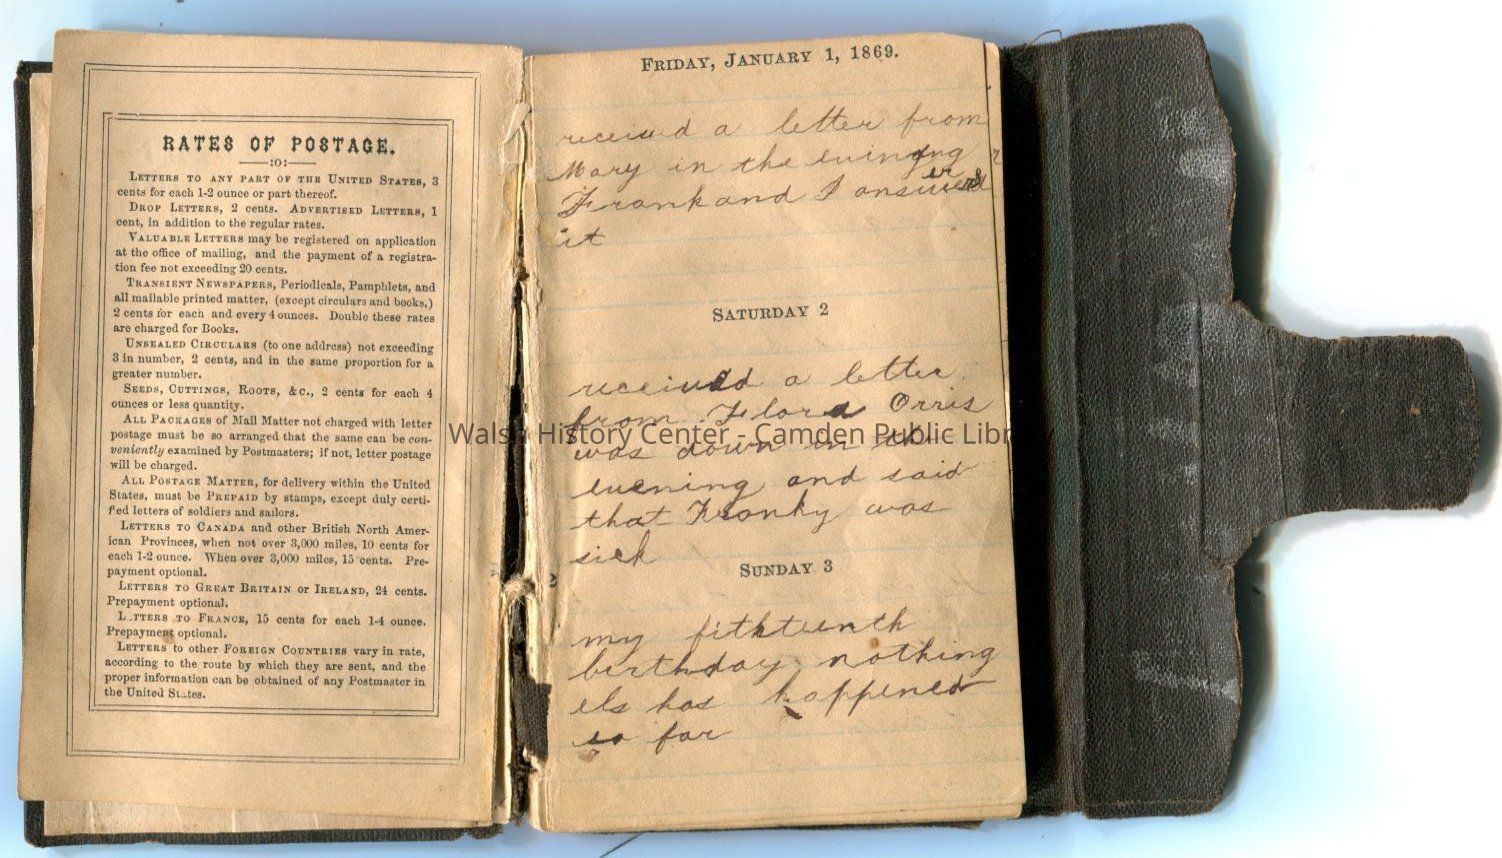 RATES OF POSTAGE.
:o:
LETTERS TO ANY PART OF THE UNITED STATES, 3
cents for each 1-2 ounce or part thereof.
DROP LETTERS, 2 cents. ADVERTISED LETTERS, 1
cent, in addition to the regular rates.
VALUABLE LETTERS may be registered on application
at the office of mailing, and the payment of a registra-
tion fee not exceeding 20 cents.
TRANSIENT NEWSPAPERS, Periodicals, Pamphlets, and
all mailable printed matter, (except circulars and books,)
2 cents for each and every 4 ounces. Double these rates
are charged for Books.
UNSEALED CIRCULARS (to one address) not exceeding
3 in number, 2 cents, and in the same proportion for a
greater number.
SEEDS, CUTTINGS, ROOTS, &C., 2 cents for each 4
ounces or less quantity.
ALL PACKAGES of Mail Matter not charged with letter
postage must be so arranged that the same can be con-
veniently examined by Postmasters; if not, letter postage
will be charged.
ALL POSTAGE MATTER, for delivery within the United
States, must be PREPAID by stamps, except duly certi-
fied letters of soldiers and sailors.
LETTERS TO CANADA and other British North Amer-
ican Provinces, when not over 3,000 miles, 10 cents for
each 1-2 ounce. When over 3,000 miles, 15 cents. Pre-
payment optional.
LETTERS TO GREAT BRITAIN or IRELAND, 24 cents.
Prepayment optional.
LETTERS TO FRANCE, 15 cents for each 1-4 ounce.
Prepayment optional.
LETTERS to other FOREIGN COUNTRIES vary in rate,
according to the route by which they are sent, and the
proper information can be obtained of any Postmaster in
the United States.
FRIDAY, JANUARY 1, 1869.
receiud a letter from
Mary in the evining
Frank and I answerd
it
SATURDAY 2
receiud a letter
from Flora Orris
was down in the
evening and said
that Franky was
sick
SUNDAY 3
my fithteenth
birthday nothing
els has happened
so far
Walsh History Center - Camden Public Libr